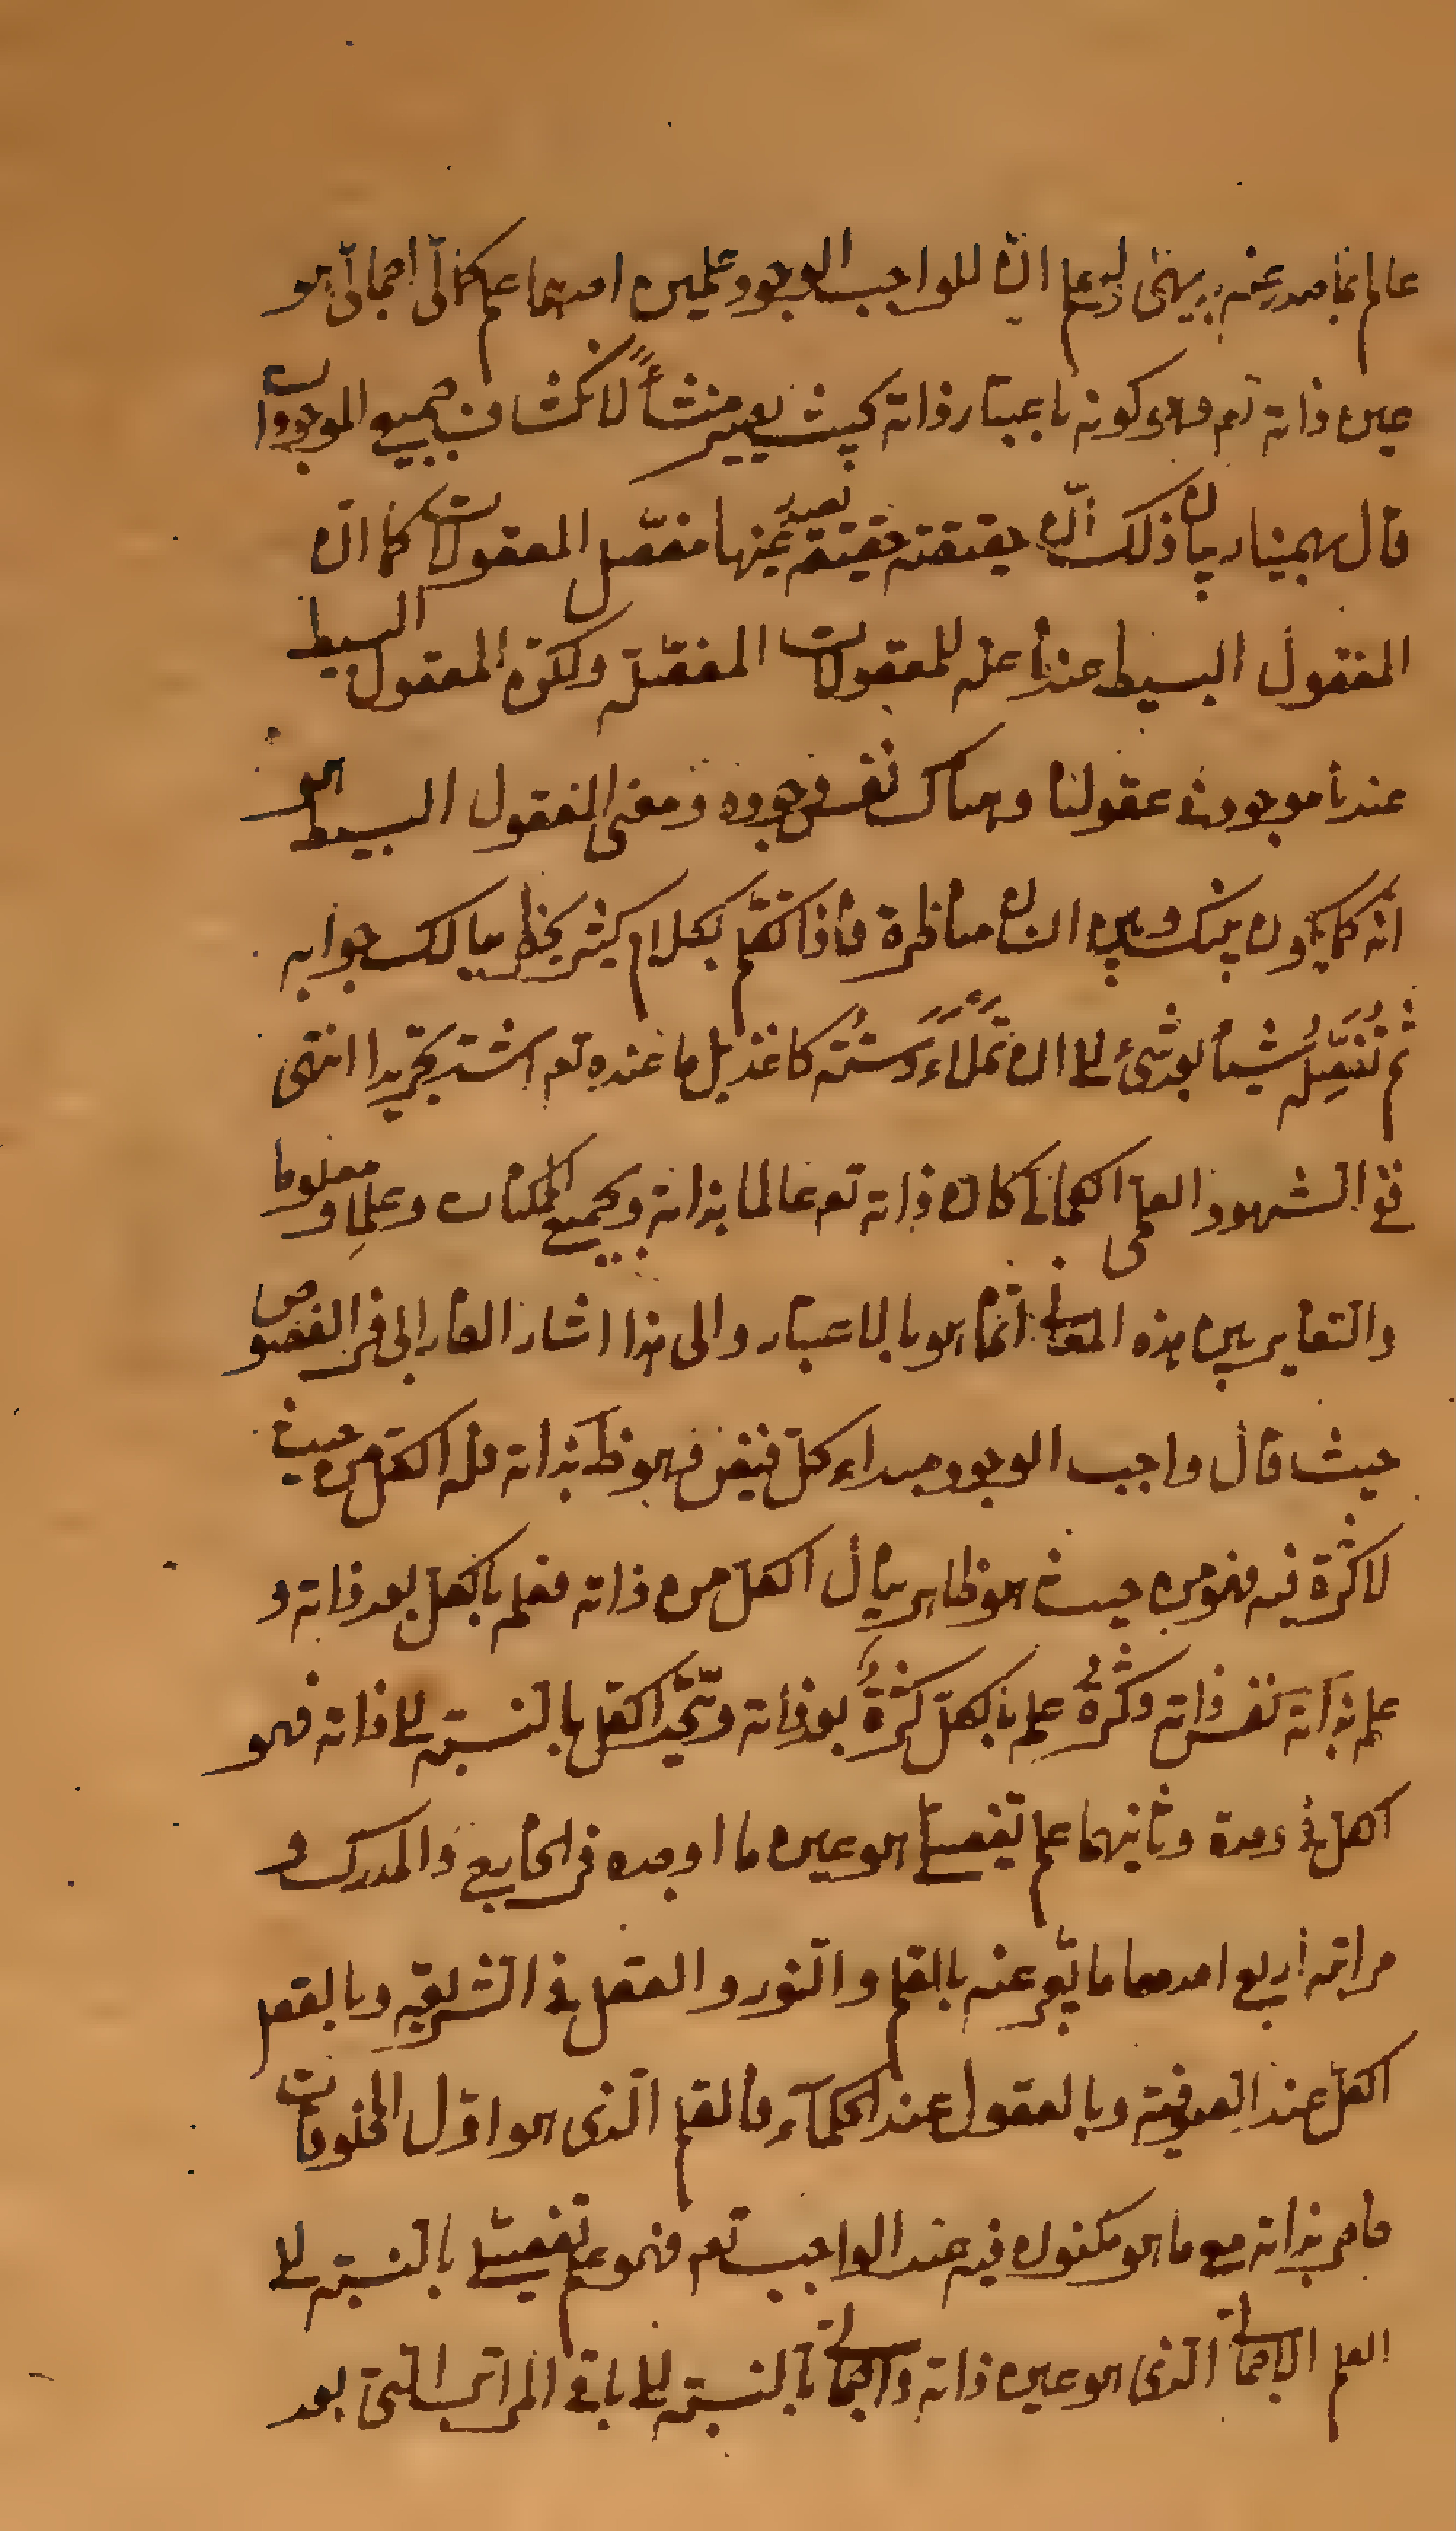 عالم بما صدر عنه اعلم انّ للواجب الوجود علمين احدهما علم كمالىّ اجمالىّ هو
عين ذاته تعم وهو كونه باعتبار ذاته بحيث يصير منشأً لانكشاف جميع الموجودات
قال بهمنيار بيان ذلك انّ حقيقته حقيقة تصدر عنها مفصّل المعقولات كما انّ
المعقول البسيط عندنا علة للمعقولات المفصّلة ولكن المعقول البسيط
عندنا موجود فى عقولنا وهناك نفس وجوده ومعنى المعقول البسيط هو
انّه كما يكون بينك وبين انسان مناظرة فاذا تكلّم بكلام كثير يخطر ببالك جوابه
ثم تُفَصِّلُه شيئا بعد شئ الى ان تملاء دستُه كاغذ بل ما عنده تعم اشد تجريدا انتهى
ففى الشهود العلمى الكمالى كان ذاته تعم عالما بذاته وبجميع الممكنات وعلما ومعلوما
والتغاير بين هذه المعانى انّما هو بالاعتبار والى هذا اشار الفارابى فى الفصوص
حيث قال واجب الوجود مبداء كلّ فيض فهو ظَ بذاته فله الكلّ من حيث
لا كثرة فيه فهو من حيث هو ظاهر ينال الكلّ من ذاته فعلمه بالكلّ بعد ذاته و
علمه بذاته نفس ذاته وكثرةُ علمه بالكلّ كثرةٌ بعد ذاته ويتّحد الكلّ بالنسبة الى ذاته فهو
الكلّ فى وحدة وثانيهما علم تفصيلى هو عين ما اوجده فى الخارج والمدرك و
مراتبه اربع احدهما ما يعبّر عنه بالقلم والنور والعقل فى الشريعة وبالعقل
الكلّ عند الصوفية وبالعقول عند الحكمآء فالقلم الّذى هو اوّل المخلوقات
حاضر بذاته مع ما هو مكنون فيه عند الواجب تعم فهو علم تفصيلى بالنسبة الى
العلم الاجمالى الّذى هو عين ذاته واجمالى بالنسبة الى باقى المراتب الّتى بعد